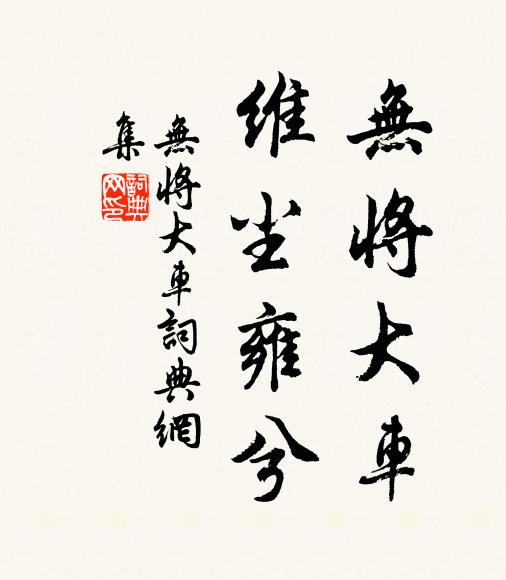 無將大車
維尘雍兮
無將大車詞典網
集
詞典
网印